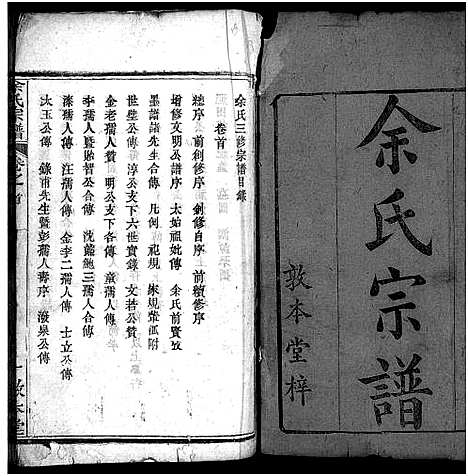 余氏宗譜
敦本堂梓
余氏三修宗譜目錄
卷首
續序 前創修序 創修自序 前續修序
增修文明公譜序 太始祖妣傳 余氏前賢攷
墨譜譜先生合傳 凡例 祀規 家規塋區附
世璧公傳 淳公支下六世實錄 文若公贊
金老孺人贊 明公支下各傳 童孺人傳
李孺人暨貽智公合傳 沈戴鮑三孺人合傳
漆孺人傳 汪孺人傳 金李二孺人傳 士立公傳
汰玉公傳 錄甫先生暨彭孺人壽序 潑泉公傳
余氏宗譜
卷之首
一
敦本堂